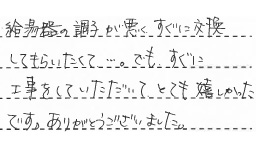 給湯器の調子が悪く、すぐに交換
してもらいたくて…。でも、すぐに
工事をしていただいて、とても嬉しかった
です。ありがとうございました。